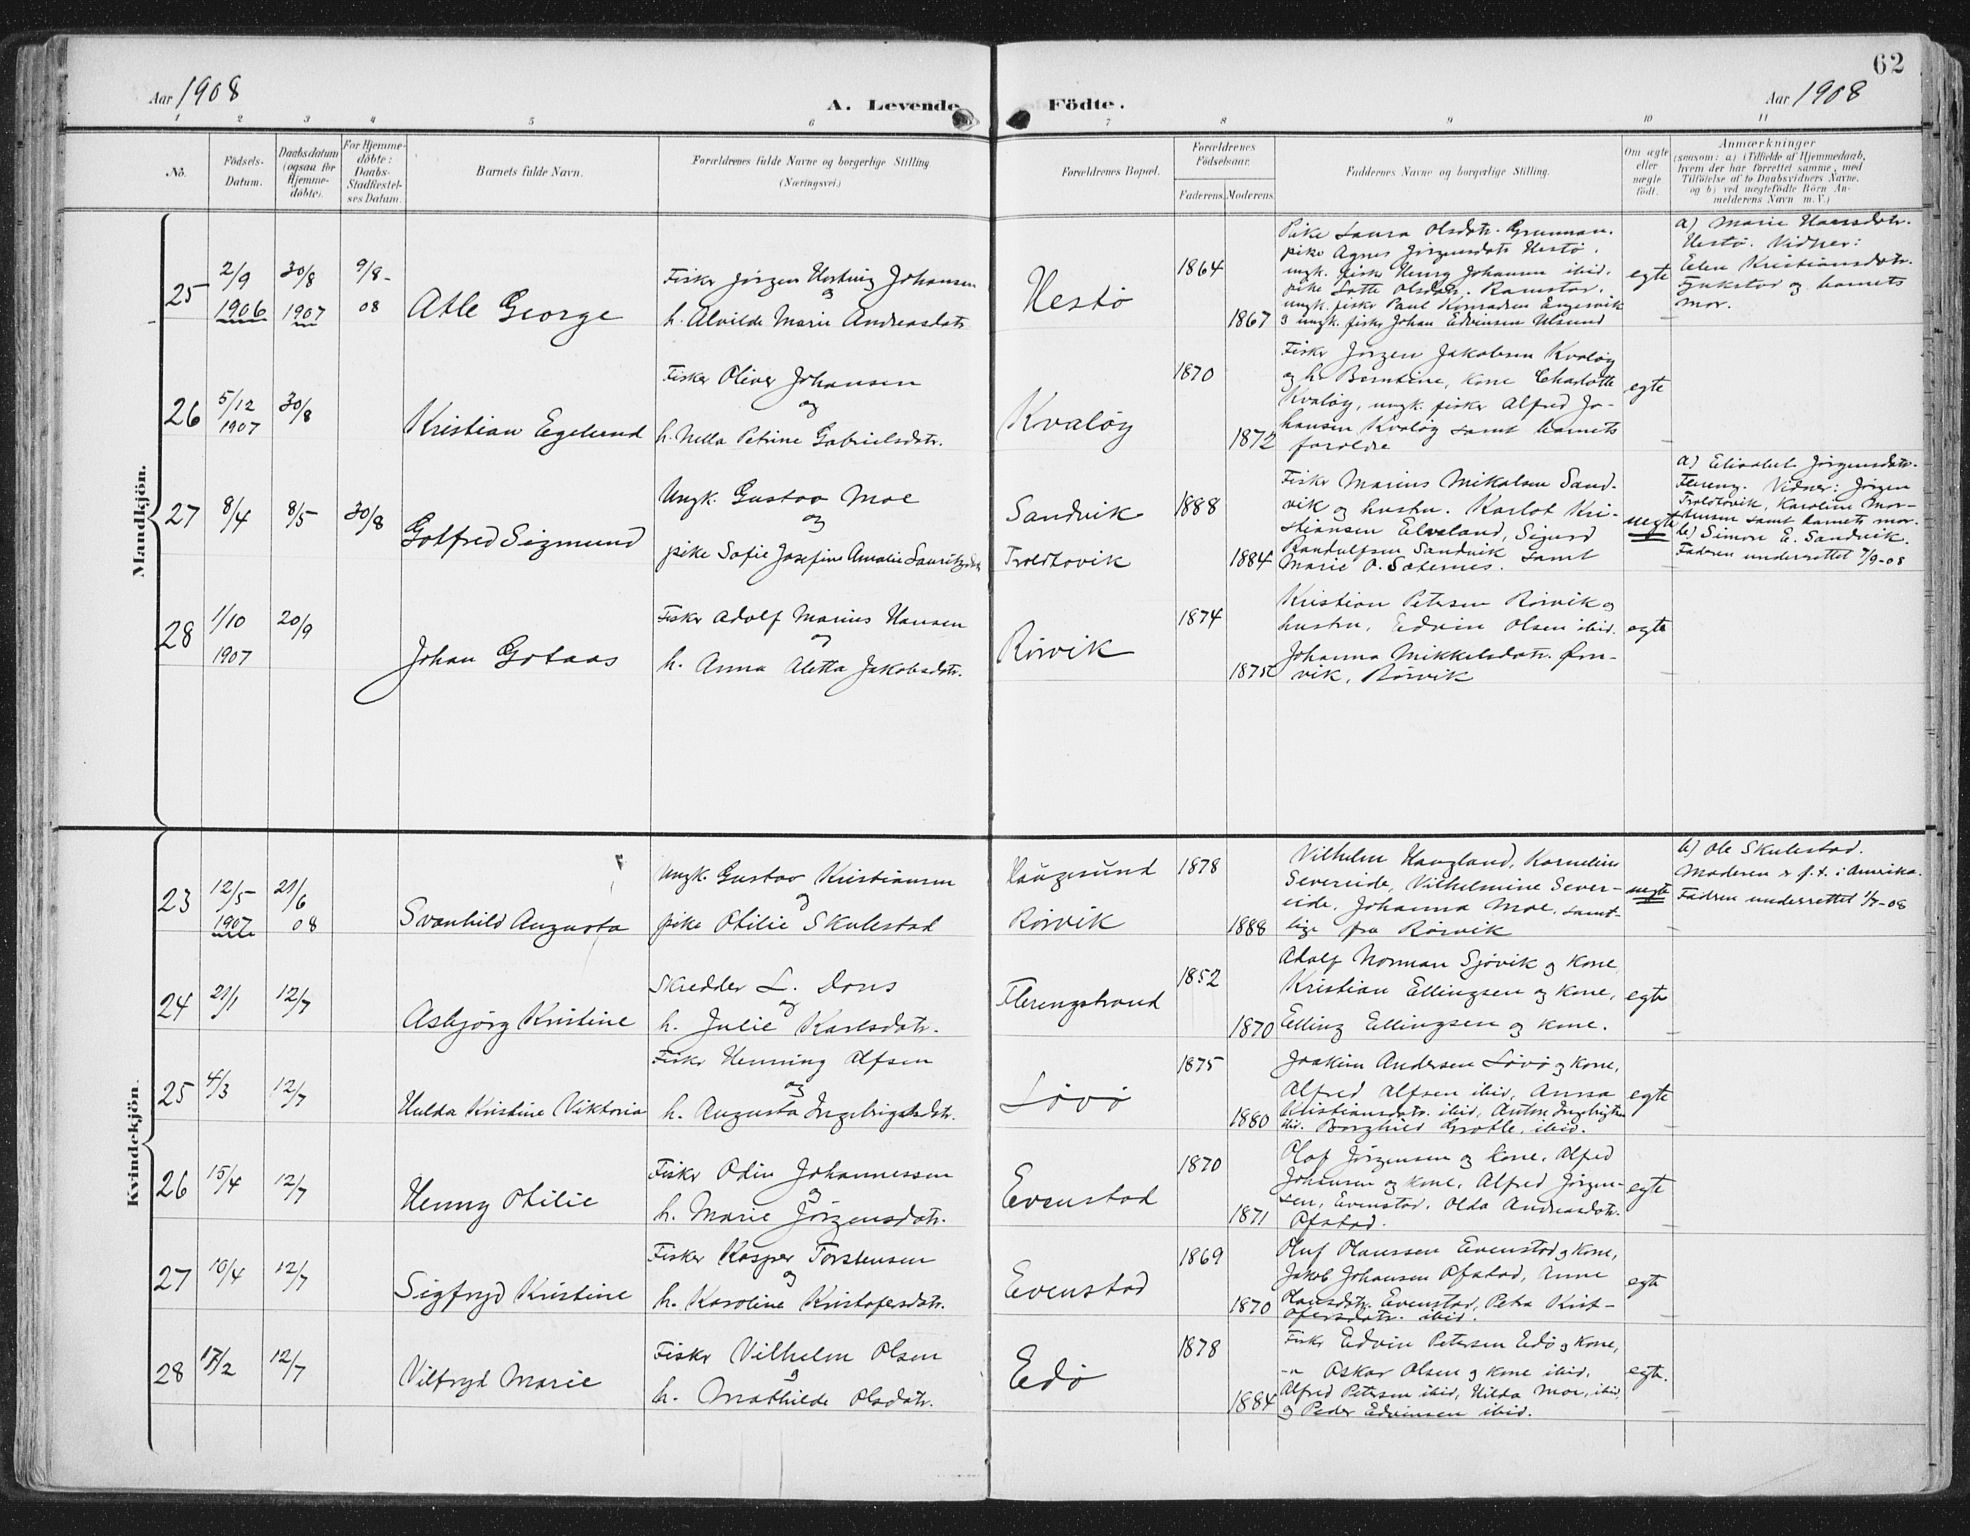 62
Aar 1908
A. Levende Födte.
Aar 1908
1 2 3 4 5 6 7 8 9 10 11
No.
Födsels-
Datum.
Daabsdatum
(ogsaa for
Hjemme-
döbte).
For Hjemme-
döbte:
Daabs-
Stadfæstel-
ses Datum.
Barnets fulde Navn.
Forældrenes fulde Navne og borgerlige Stilling
(Næringsvei.)
Forældrenes Bopæl.
Forældrenes
Födselsaar.
Faderens. Moderens.
Faddernes Navne og borgerlige Stilling.
Om ægte
eller
uægte
födt.
Anmærkninger
(saasom: a) i Tilfælde af Hjemmedaab,
hvem der har forrettet samme, med
Tilföielse af to Daabsvidners Navne,
og b) ved uægtefödte Börn An-
melderens Navn m. V.)
Mandkjön.
25
2/9
1906
30/8
1907
9/8-
08
Atle George
Fisker Jörgen Hartvig Johansen
og
h. Alvilde Marie Andreasdatr.
Hestö
1864
1867
Pike Laura Olsdatr. Grunnan.
pike Agnes Jörgensdatr Hestö.
ungk. fisker Henry Johansen ibid.
pike Lotte Olsdatr. Ramstad.
ungk. fisker Paul Konradsen Engesvik
og ungk. fisker Johan Edvinsen Ulsund
egte
a) Marie Hansdatr.
Hestö. Vidner:
Elen Kristiansdatr.
og barnets
mor.
26
5/12
1907
30/8
Kristian Egelund
Fisker Oliver Johansen
og
h. Nella Petrine Gabrielsdatr.
Kvalöy
1870
1872
Fisker Jörgen Jakobsen Kvalöy
og h. Berntine, kone Charlotte
Kvalöy, ungk. fisker Alfred Jo-
hansen Kvalöy samt barnets
foreldre
egte
27
8/4
8/5
30/8
Gotfred Sigmund
Ungk. Gustav Moe
og
pike Sofie Josefine Amalie Lauritzdatr
Sandvik
Troldtovik
1888
1884
Fisker Marius Mikalsen Sand-
vik og hustru. Karlot Kri-
stiansen Elveland, Sigurd
Randulfsen Sandvik samt
Marie O. Sæternes.
uegte
a) Elisabet Jörgensdatr.
Flereng. Vidner: Jörgen
Troldtovik, Karoline Mor-
tensen samt barnets mor.
b) Simon E. Sandvik.
Faderen underrettet 7/9-08
28
1/10
1907
20/9
Johan Gotaas
Fisker Adolf Marius Hansen
og
h. Anna Aletta Jakobsdatr.
Rörvik
1874
1875
Kristian Petersen Rörvik og
hustru, Edvin Olsen ibid.
Johanna Mikkelsdatr. Örn-
vik, Rörvik
egte
Kvindekjön.
23
12/5
1907
21/6
08
Svanhild Augusta
Ungk. Gustav Kristiansen
og
pike Otilie Skulestad
Haugesund
Rörvik
1878
1888
Vilhelm Haugland, Kornelius
Severeide, Vilhelmine Sever-
eide, Johanna Moe, samt-
lige fra Rörvik
uegte
b) Ole Skulestad.
Moderen er f.t. i Amerika.
Fadren underrettet 1/7-08
24
21/1
12/7
Asbjörg Kristine
Skredder L. Dons
og
h. Julie Karlsdatr.
Flerengstrand
1852
1870
Adolf Norman Sjövik og kone,
Kristian Ellingsen og kone,
Elling Ellingsen og kone.
egte
25
4/3
12/7
Hulda Kristine Viktoria
Fisker Henning Alfsen
og
h. Augusta Ingebrigtsdatr.
Lövö
1875
1880
Joakim Andersen Lövö og kone,
Alfred Alfsen ibid, Anna
Kristiansdatr. ibid, Anton Ingebrigtsen
ibid. Borghild Grotle, ibid.
egte
26
15/4
12/7
Henny Otilie
Fisker Odin Johannessen
og
h. Marie Jörgensdatr.
Evenstad
1870
1871
Olaf Jörgensen og kone, Alfred
Johansen og kone, Alfred Jörgen-
sen, Evenstad, Olda Andreasdatr.
Ofstad.
egte
27
10/4
12/7
Sigfryd Kristine
Fisker Kasper Torstensen
og
h. Karoline Kristofersdatr.
Evenstad
1869
1870
Oluf Olaussen Evenstad og kone,
Jakob Johansen Ofstad, Anne
Olausdatr. Evenstad, Petra Krist-
ofersdatr. ibid.
egte
28
17/2
12/7
Vilfryd Marie
Fisker Vilhelm Olsen
og
h. Mathilde Olsdatr.
Edö
1878
1884
Fisker Edvin Petersen Edö og kone,
-n Oskar Olsen og kone ibid.
Alfred Petersen ibid, Hilda Moe, ibid,
og Peder Edvinsen ibid.
egte.